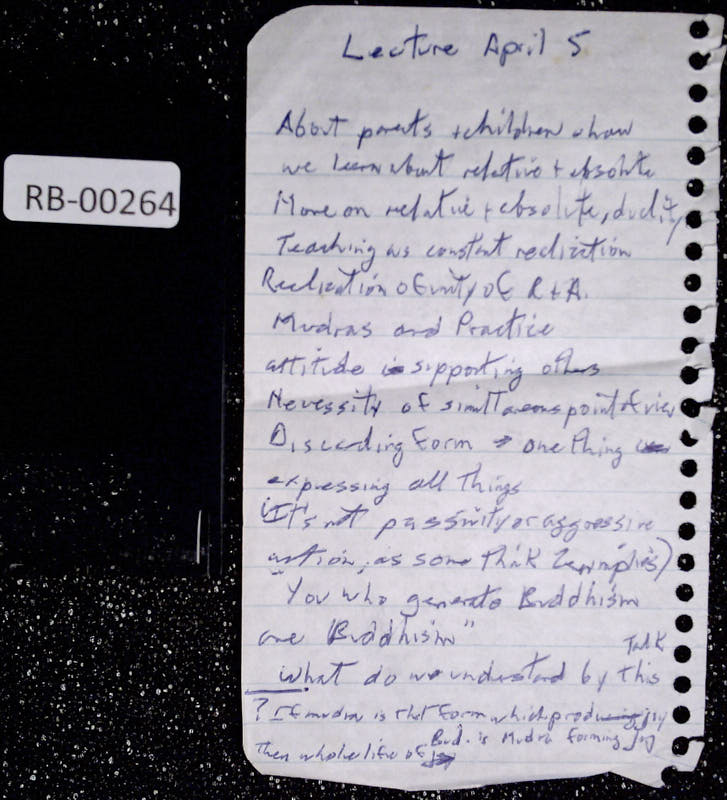 Lecture April 5
RB-00264
About parents + children + how
we learn about relative + absolute
More on relative + absolute, duality
Teaching as constant realization
Realization of unity of R + A.
Mudras and Practice
attitude is supporting others
Necessity of simultaneous point of view
Discarding form → one thing
expressing all things
(It's not passivity or aggressive
action, as some think Zen implies)
"You who generate Buddhism
are Buddhism"
Talk
What do we understand by this
? If mudra is that form which producing joy
Then whole life of Bud. is Mudra forming joy